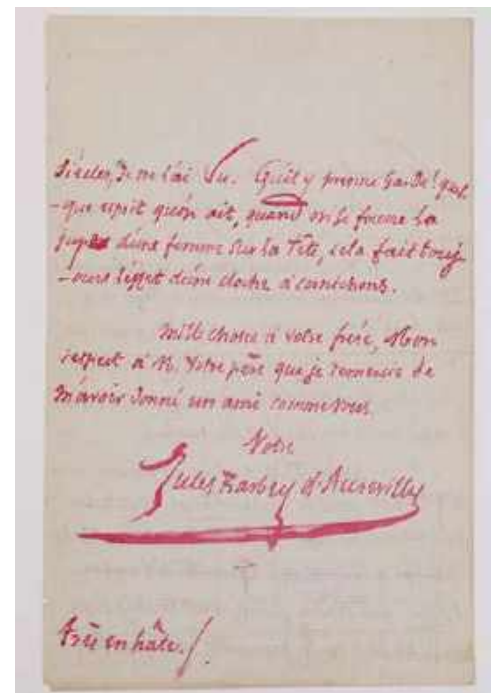 Siècles, Je ne l'ai Lu. Qu'il y prenne Garde! quel-
-que esprit qu'on ait, quand on se fourre la
jupe d'une femme Sur la Tête, cela fait touj-
-ours l'effet d'une cloche à cornichons.
Mille choses à votre frère, Mon
respect à M. Votre père que je remercie de
m'avoir donné un ami comme vous.
Votre
Jules Barbey d'Aurevilly
Très en hâte.